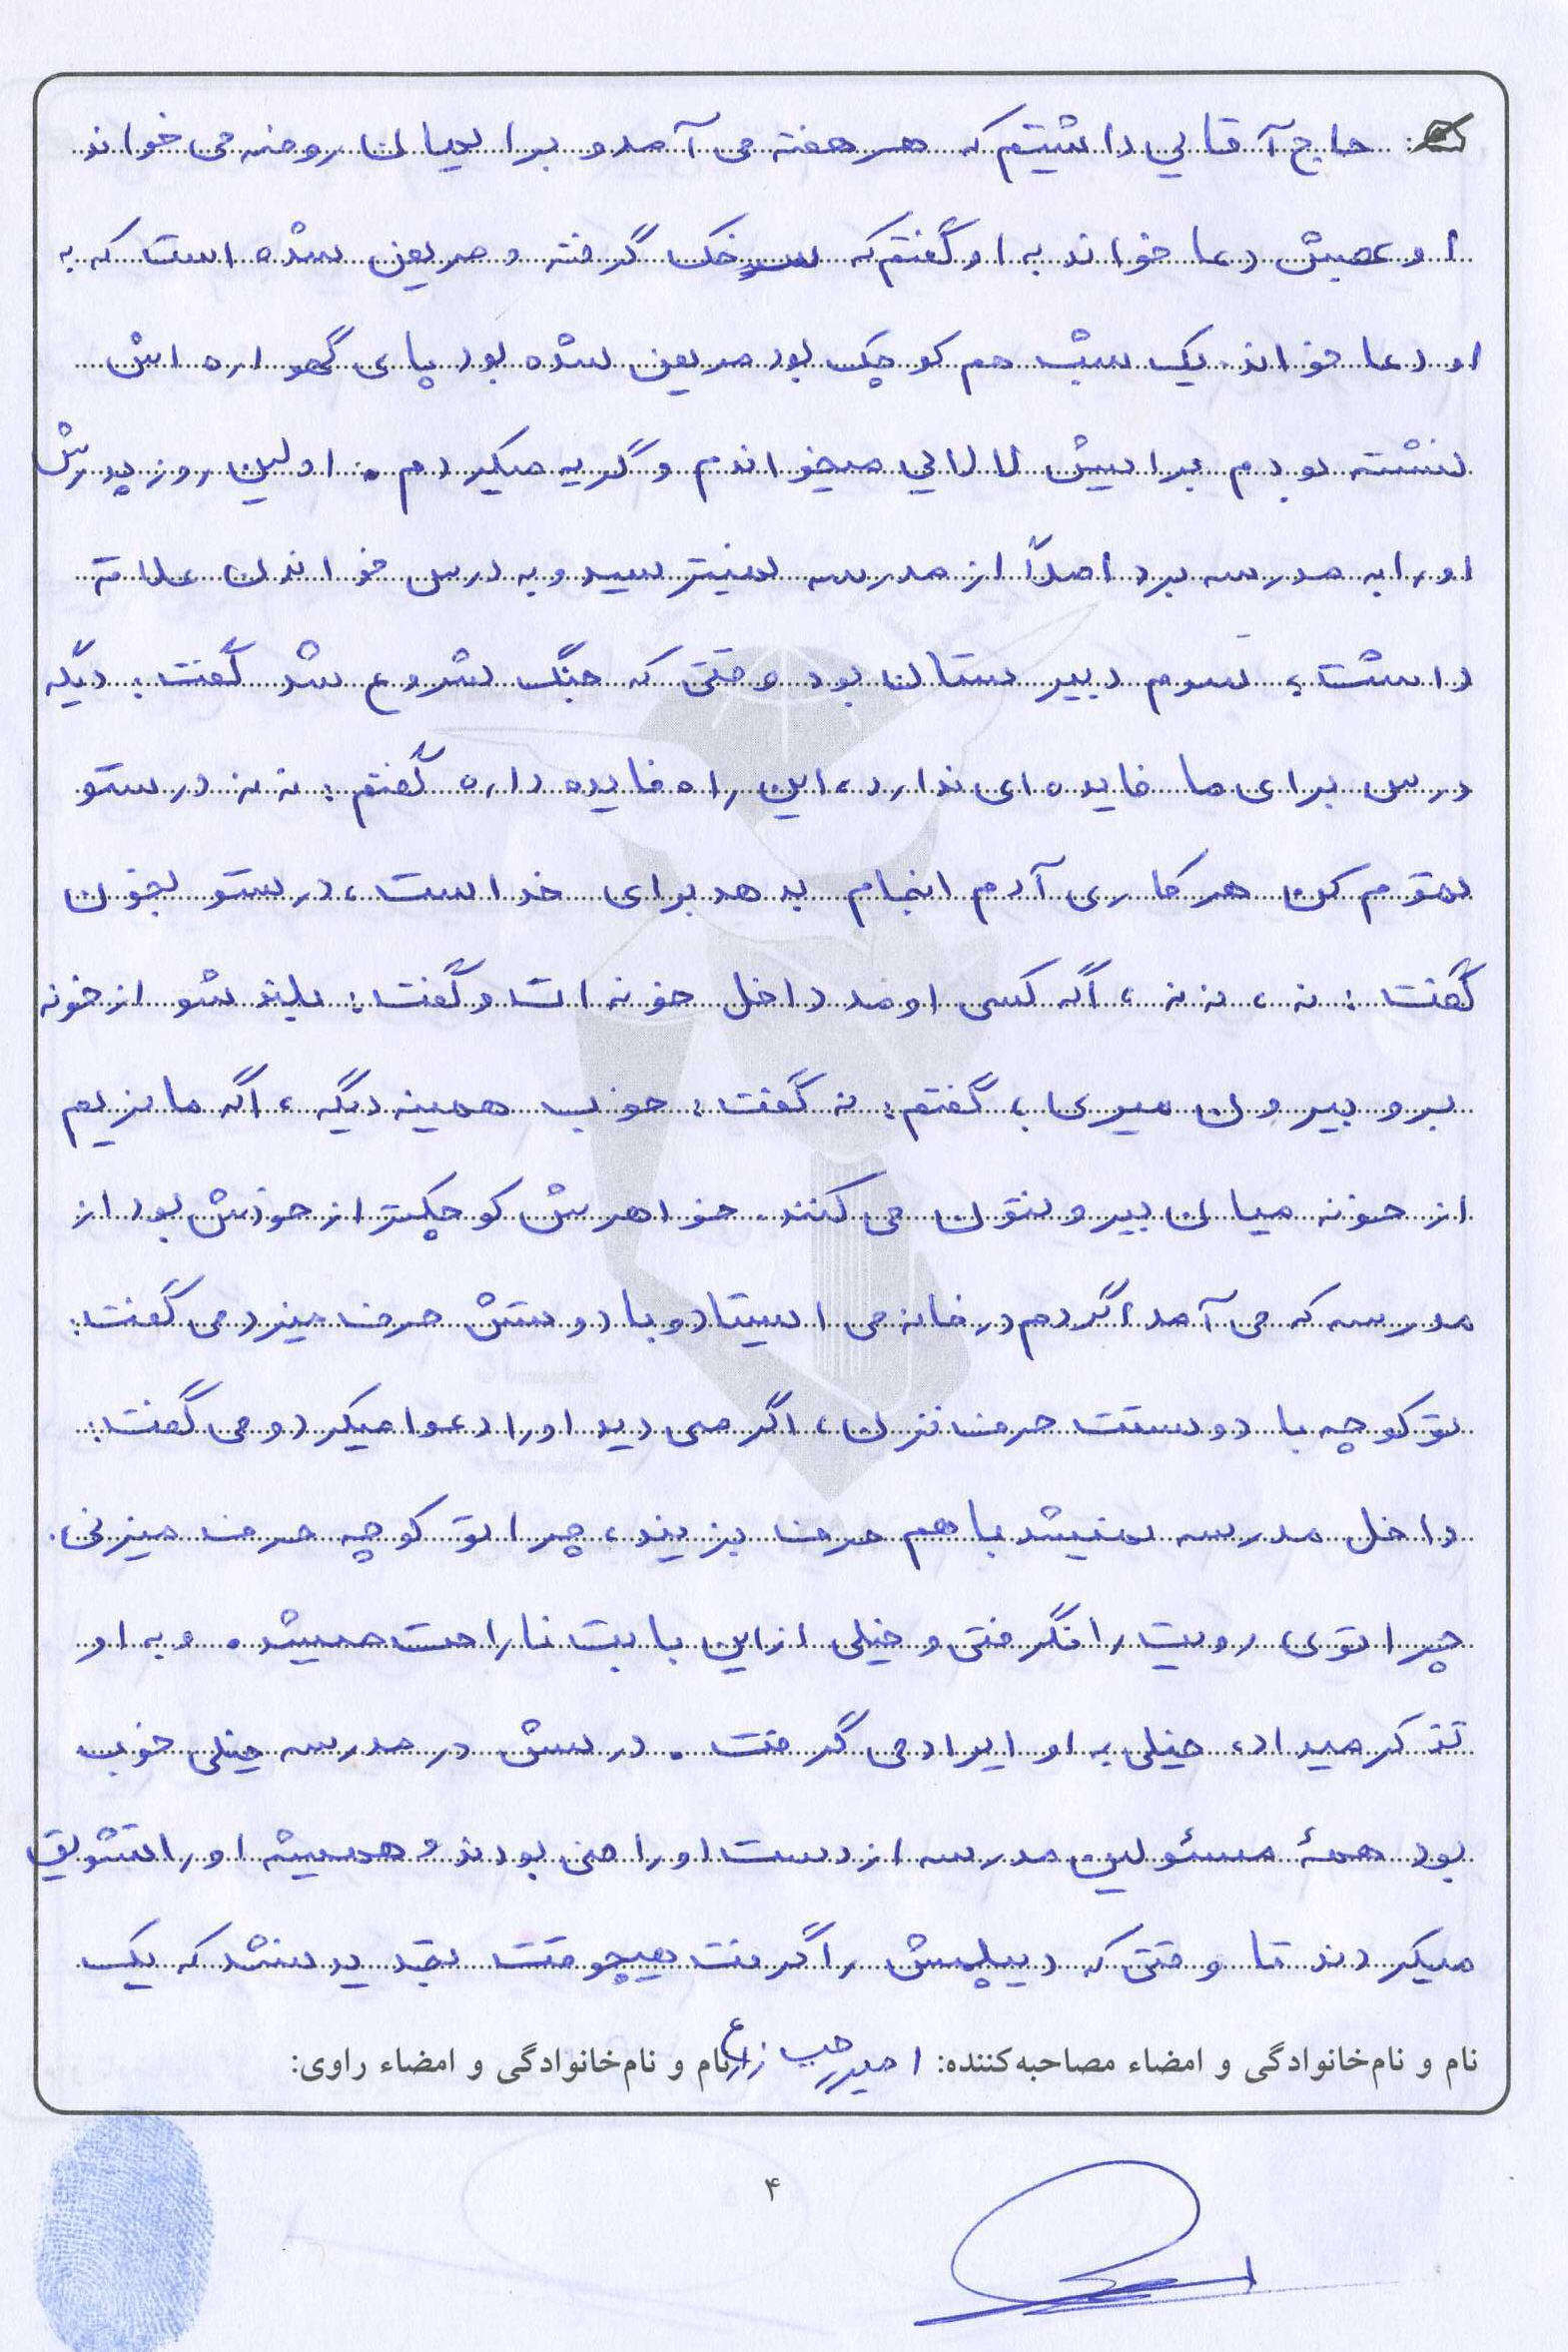 حاج آقایی داشتیم که هر هفته می آمد و برایمان روضه می خواند
او دعا خواند به او گفتم که سرخک گرفته و مریض شده است که به
او دعا خواند. یک شب هم کوچک بود مریض شده بود پای گهواره اش
نشسته بودم برایش لالایی میخواندم و گریه میکردم. اولین روز پدرش
او را به مدرسه برد اصلاً از مدرسه نیترسید و به درس خواندن علاقه
داشت، سوم دبیرستان بود وقتی که جنگ شروع شد گفت: دیگه
درس برای ما فایده ای ندارد، این راه فایده داره گفتم: نه نه درستو
تموم کن هر کاری آدم انجام بدهد برای خداست، درستو بخون
گفت: نه، نه نه، اگه کسی اومد داخل خونه ات و گفت: بلند شو از خونه
برو بیرون میری؟ گفتم: نه گفت: خوب همینه دیگه، اگه ما نریم
از خونه میان بیرونتون می کنند. خواهرش کوچکتر از خودش بود از
مدرسه که می آمد اگر دم در خانه می ایستاد و با دوستش حرف میزد می گفت:
تو کوچه با دوستت حرف نزن، اگر می دید او را دعوا میکرد و می گفت:
داخل مدرسه نمیشد با هم حرف بزنید، چرا تو کوچه حرف میزنی.
چرا توی رویت را نگرفتی و خیلی از این بابت ناراحت میشد. و به او
تذکر میداد، خیلی به او ایراد می گرفت. درسش در مدرسه خیلی خوب
بود همهٔ مسئولین مدرسه از دست او راضی بودند و همیشه او را تشویق
میکردند تا وقتی که دیپلمش را گرفت هیچوقت تجدید نشد که یک
نام و نام‌خانوادگی و امضاء مصاحبه‌کننده: امیر زارع نام و نام‌خانوادگی و امضاء راوی:
۴